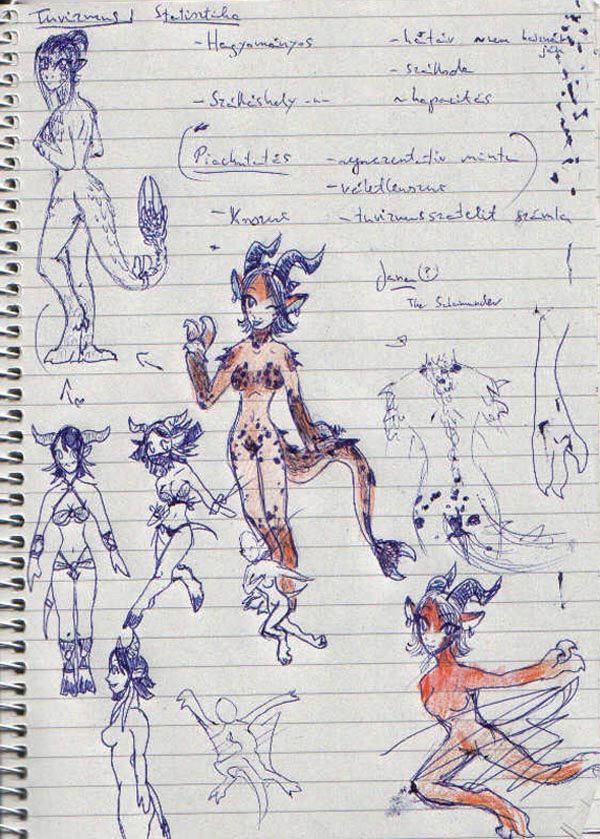 Turizmus Statisztika
- Hagyományos - határ
- szálloda
- Szálláshely - kapacitás
Piackutatás - reprezentatív minta
- véletlenszerű
- turizmus szatelit számla
Jana (?)
The Salamander